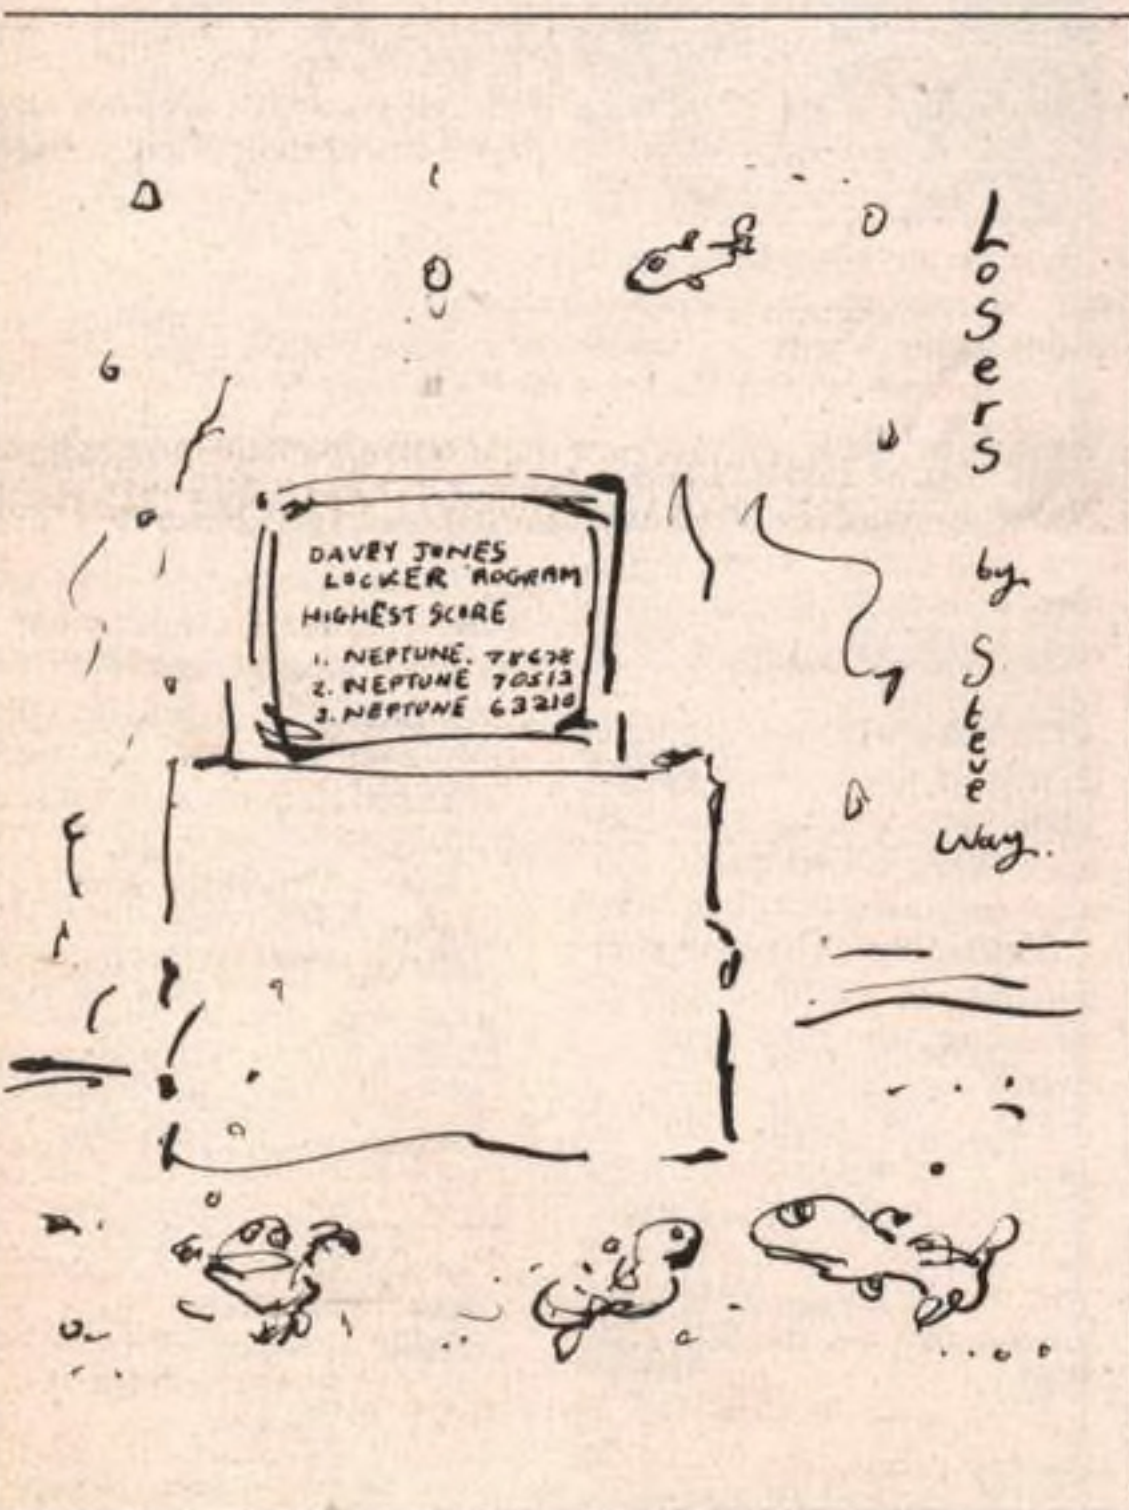 Losers
by
Steve
Way.
DAVEY JONES
LOCKER ROGRAM
HIGHEST SCORE
1. NEPTUNE. 78678
2. NEPTUNE 70513
3. NEPTUNE 63210